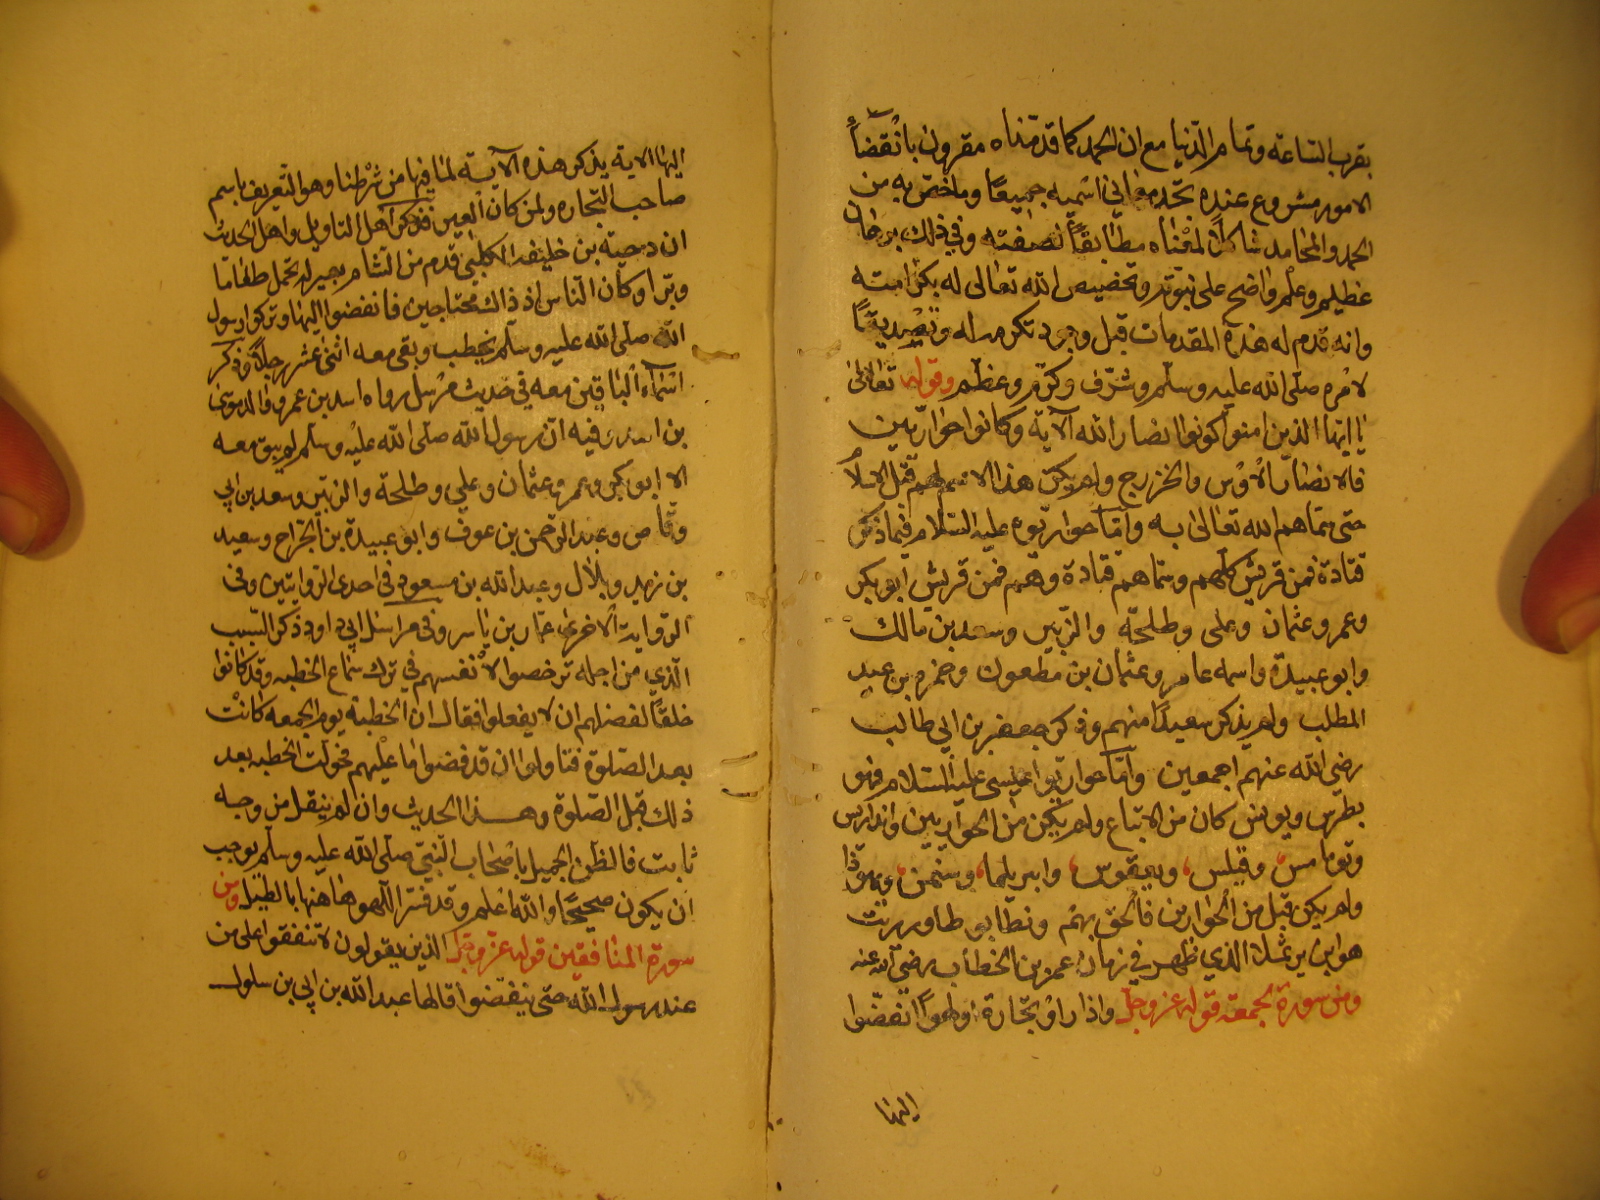 بقرب الساعة وتمام الدنيا مع ان الحمد كما قدمناه مقرون بانقضاء
الامور مشروع عنده تجد معاني اسميه جميعا وما خص به من
الحمد والمحامد شاكلا لمعناه مطابقا لصفته وفي ذلك برهان
عظيم وعلم واضح على نبوته وتخصيص الله تعالى له بكرامته
وانه قدم له هذه المقدمات قبل وجوده تكرمة له وتصديقا
لامره صلى الله عليه وسلم وشرف وكرم وعظم وقوله تعالى
يا ايها الذين امنوا كونوا انصار الله الآية وكانوا حواريين
فالانصار الاوس والخزرج ولم يكن هذا الاسم لهم قبل الاسلا
حتى سماهم الله تعالى به واما حواريوه عليه السلام فيما ذكر
قتادة فمن قريش كلهم وسماهم قتادة وهم فمن قريش ابو بكر
وعمر وعثمان وعلى وطلحة والزبير وسعد بن مالك
وابو عبيدة واسمه عامر وعثمان بن مظعون وحمزه بن عبد
المطلب ولم يذكر سعيدا منهم وذكر جعفر بن ابي طالب
رضي الله عنهم اجمعين واما حواريوا عيسى عليه السلام فهو
بطرس ويونس كان من الاتباع ولم يكن من الحواريين واندارس
وتوماس وفيلس ويعقوس وابن يلما وسنمن ويهوذا
ولم يكن قبل من الحوارين فالحق بهم ونطابو طا وزريت
هو ابن برثملا الذي ظهر في زمان عمر بن الخطاب رضي الله عنه
ومن سورة الجمعة قوله عز وجل واذا راوا تجارة او لهوا انفضوا
اليها
اليها الاية يذكر هذه الآية لما فيها من شرطنا وهو التعريف باسم
صاحب التجاره ولمن كان العير فذكر اهل التاويل واهل الحديث
ان دحية بن خليفة الكلبي قدم من الشام بعير له تحمل طعاما
وبرا وكان الناس اذ ذاك محتاجين فانفضوا اليها وتركوا رسول
الله صلى الله عليه وسلم يخطب وبقى معه اثنى عشر رجلا وذكر
اسماء الباقين معه في حديث مرسل رواه اسد بن عمرو والد موسى
بن اسد وفيه ان رسول الله صلى الله عليه وسلم لم يبق معه
الا ابو بكر وعمر وعثمان وعلي وطلحة والزبير وسعد بن ابي
وقاص وعبد الرحمن بن عوف وابو عبيدة بن الجراح وسعيد
بن زيد وبلال وعبد الله بن مسعود في احدى الروايتين وفي
الرواية الاخرى عمار بن ياسر وفي مراسل ابي داود ذكر السبب
الذي من اجله ترخصوا لانفسهم في ترك سماع الخطبه وقد كانوا
خلقا لفضلهم ان لا يفعلوا فقال ان الخطبة يوم الجمعه كانت
بعد الصلوة فتاولوا ان قد قضوا ما عليهم فحولت الخطبه بعد
ذلك قبل الصلوة وهذا الحديث وان لم ينقل من وجه
ثابت فالظن الجميل باصحاب النبي صلى الله عليه وسلم يوجب
ان يكون صحيحا والله اعلم وقد فسر اللهو هاهنا بالطبل ومن
سورة المنافقين قوله عز وجل الذين يقولون لا تنفقوا على من
عند رسول الله حتى ينفضوا قالها عبد الله بن ابي بن سلول